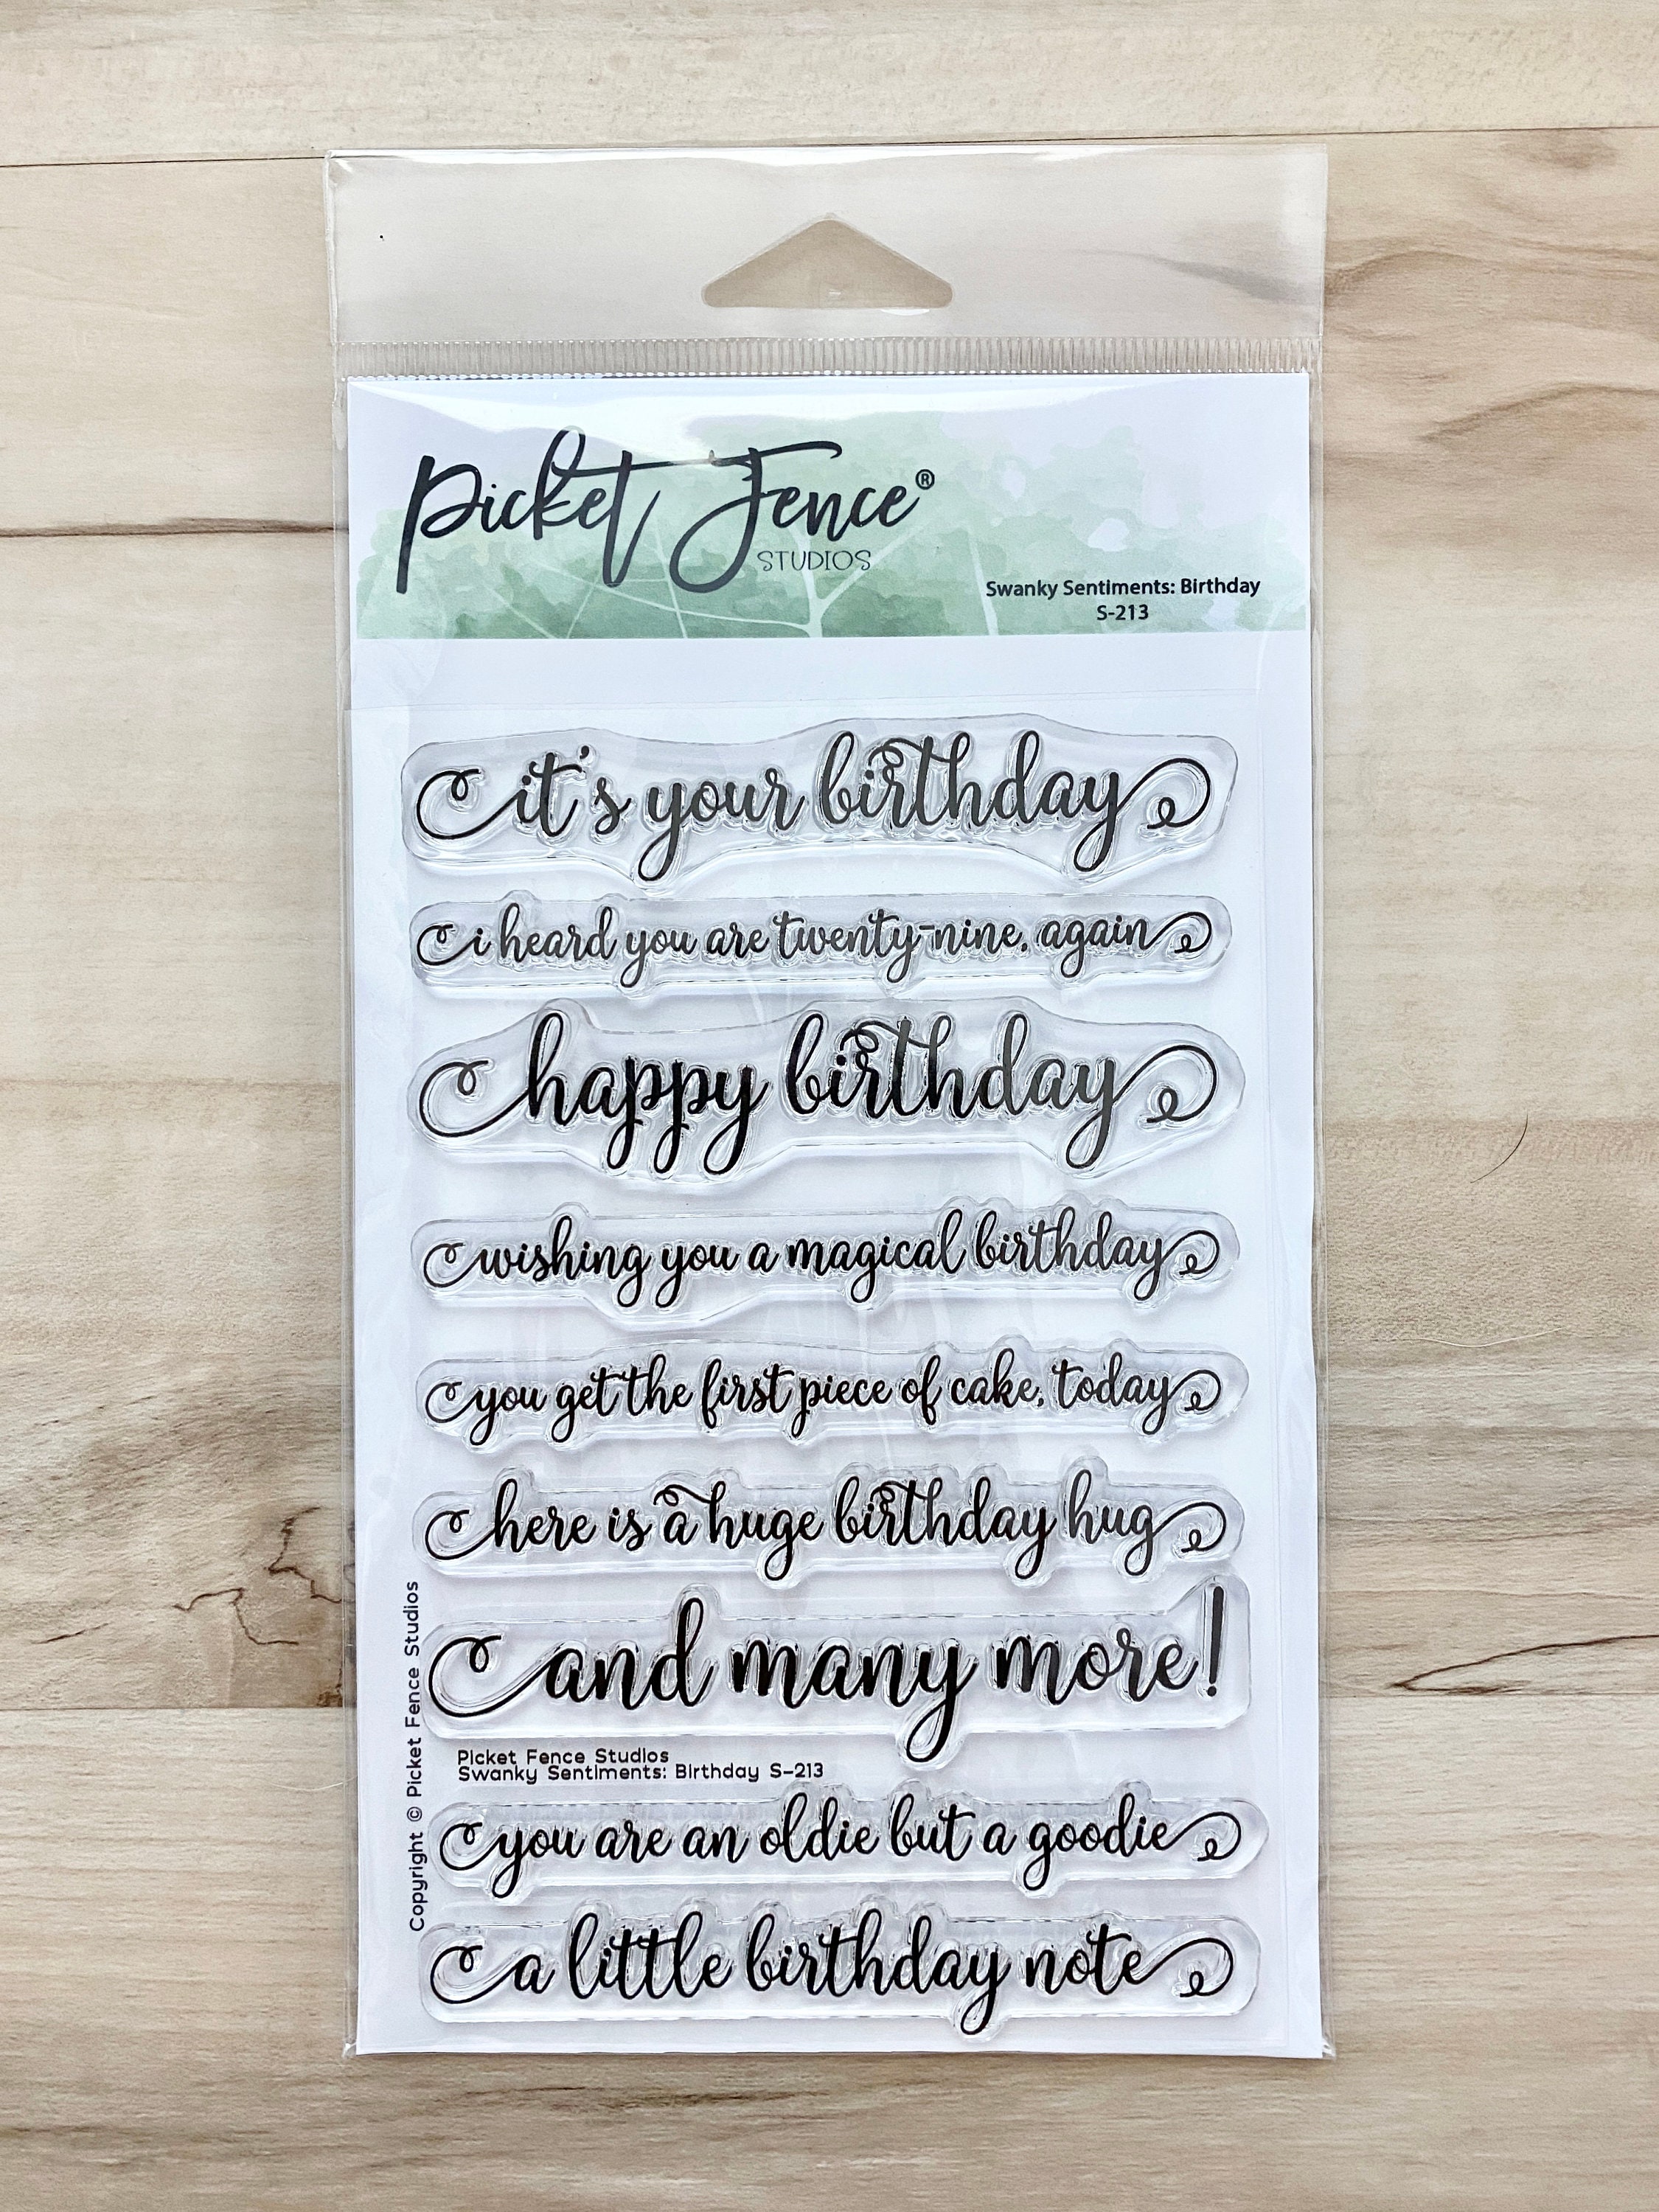 Picket Fence®
STUDIOS
Swanky Sentiments: Birthday
S-213
it's your birthday
i heard you are twenty-nine, again
happy birthday
wishing you a magical birthday
you get the first piece of cake, today
here is a huge birthday hug
and many more!
Picket Fence Studios
Swanky Sentiments: Birthday S-213
you are an oldie but a goodie
a little birthday note
Copyright © Picket Fence Studios